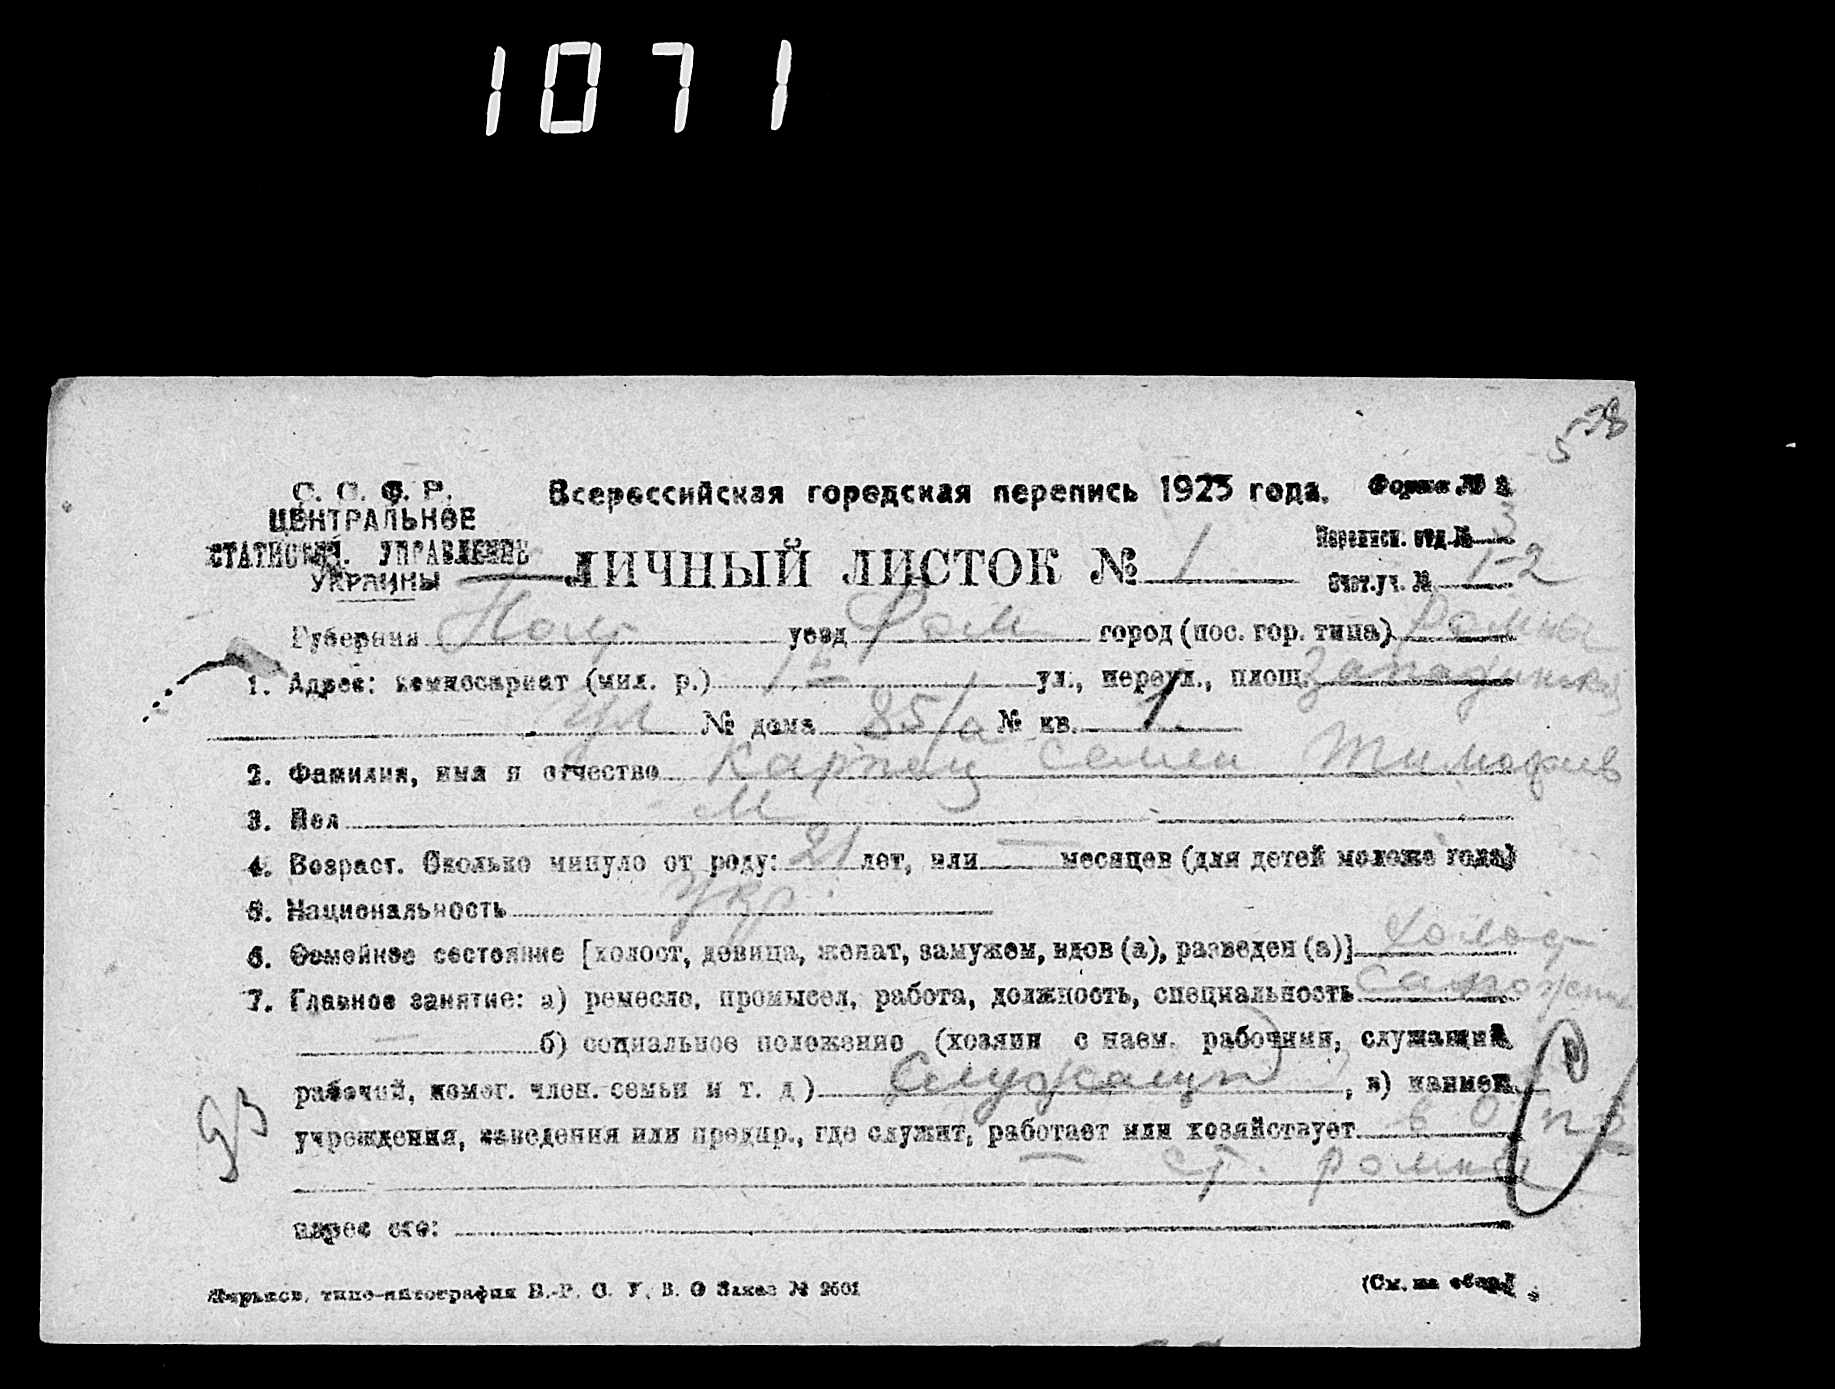 1071
538
С. С. С. Р.
ЦЕНТРАЛЬНОЕ
СТАТИСТИЧ. УПРАВЛЕНИЕ
УКРАИНЫ
Всероссийская городская перепись 1923 года.
Форма № 2
Переписн. отд. № 3
ЛИЧНЫЙ ЛИСТОК № 1
Счет. уч. № 1-2
Губерния Полт уезд Ром город (пос. гор. типа) Ромна
1. Адрес: комиссариат (мил. р.) 1й ул., переул., площ.
ул № дома 85/а № кв. 1.
2. Фамилия, имя и отчество Карпец Семен Тимофиев
3. Пол М
4. Возраст. Сколько минуло от роду: 21 лет, или — месяцев (для детей моложе года)
5. Национальность Укр.
6. Семейное состояние [холост, девица, женат, замужем, вдов (а), разведен (а)] Холост
7. Главное занятие: а) ремесло, промысел, работа, должность, специальность Сапожник
б) социальное положение (хозяин с наем. рабочими, служащий
рабочий, помог. член. семьи и т. д) Служащий, в) наимен.
93
учреждения, заведения или предпр., где служит, работает или хозяйствует в
ст. Ромна
адрес его:
Харьков, типо-литография В.-Р. С. У. В. О Заказ № 2501
(См. на обор.)